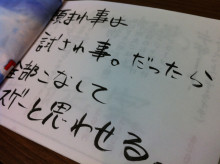 頼まれ事は
試され事。だったら
全部こなして
スゲーと思わせる。